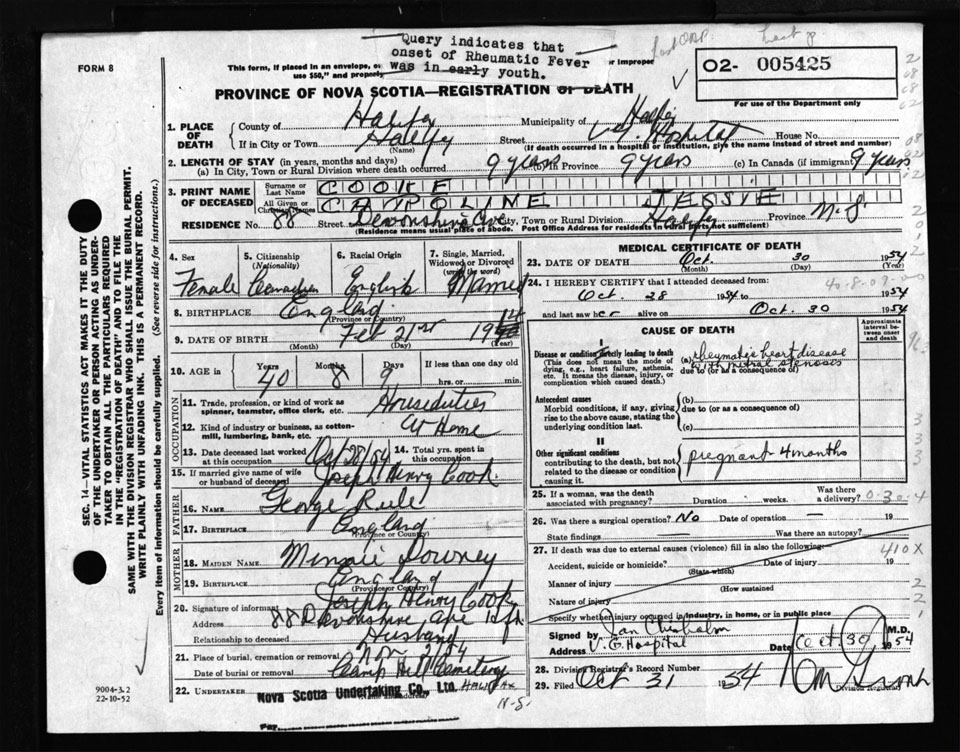 Query indicates that
onset of Rheumatic Fever
was in early youth.
FORM 8
This form, if placed in an envelope, or improper
use $50," and properly
02- 005425
For use of the Department only
PROVINCE OF NOVA SCOTIA—REGISTRATION OF DEATH
1. PLACE OF DEATH
County of Halifax Municipality of Halifax
If in City or Town Halifax Street V.G. Hospital House No.
(Name) (If death occurred in a hospital or institution, give the name instead of street and number)
2. LENGTH OF STAY (in years, months and days)
(a) In City, Town or Rural Division where death occurred 9 years (b) In Province 9 years (c) In Canada (if immigrant) 9 years
3. PRINT NAME OF DECEASED
Surname or Last Name COOKE
All Given or Christian Names CAROLINE JESSIE
RESIDENCE No. 88 Street Devonshire Ave City, Town or Rural Division Halifax Province N.S.
(Residence means usual place of abode. Post Office Address for residents in rural parts not sufficient)
4. Sex Female
5. Citizenship (Nationality) Canadian
6. Racial Origin English
7. Single, Married, Widowed or Divorced (write the word) Married
8. BIRTHPLACE England
(Province or Country)
9. DATE OF BIRTH Feb 21st 1914
(Month) (Day) (Year)
10. AGE in Years 40 Months 8 Days 9 If less than one day hrs. or min.
OCCUPATION
11. Trade, profession, or kind of work as spinner, teamster, office clerk, etc. Houseduties
12. Kind of industry or business, as cotton-mill, lumbering, bank, etc. At Home
13. Date deceased last worked at this occupation Oct 28/54 14. Total yrs. spent in this occupation
15. If married give name of wife or husband of deceased Joseph Henry Cook.
FATHER
16. NAME George Rule
17. BIRTHPLACE England
(Province or Country)
MOTHER
18. MAIDEN NAME Minnie Downey
19. BIRTHPLACE England
(Province or Country)
20. Signature of informant Joseph Henry Cook
Address 88 Devonshire Ave Hfx
Relationship to deceased Husband
21. Place of burial, cremation or removal
Date of burial or removal Nov 2/54
Camp Hill Cemetery
22. UNDERTAKER Nova Scotia Undertaking Co., Ltd. HALIFAX
N.S.
9004-3.2
22-10-52
MEDICAL CERTIFICATE OF DEATH
23. DATE OF DEATH Oct. 30 1954
(Month) (Day) (Year)
24. I HEREBY CERTIFY that I attended deceased from:
Oct. 28 1954 to 1954
and last saw her alive on Oct. 30 1954
CAUSE OF DEATH
Approximate interval between onset and death
I
Disease or condition directly leading to death
(This does not mean the mode of dying, e.g., heart failure, asthenia, etc. It means the disease, injury, or complication which caused death.)
(a) rheumatic heart disease
with mitral stenosis
due to (or as a consequence of)
Antecedent causes
Morbid conditions, if any, giving rise to the above cause, stating the underlying condition last.
(b)
due to (or as a consequence of)
(c)
II
Other significant conditions
contributing to the death, but not related to the disease or condition causing it.
pregnant 4 months
25. If a woman, was the death associated with pregnancy? Duration weeks. Was there a delivery? 0-30-4
26. Was there a surgical operation? No Date of operation — 19
State findings — Was there an autopsy?
27. If death was due to external causes (violence) fill in also the following: 410X
Accident, suicide or homicide? Date of injury 19
(State which)
Manner of injury
(How sustained
Nature of injury
Specify whether injury occurred in industry, in home, or in public place
Signed by Ian Chisholm M.D.
Address V.G. Hospital Date Oct 30 1954
28. Division Registrar's Record Number
29. Filed Oct 31 1954
Division Registrar
SEC. 14—VITAL STATISTICS ACT MAKES IT THE DUTY
OF THE UNDERTAKER OR PERSON ACTING AS UNDER-
TAKER TO OBTAIN ALL THE PARTICULARS REQUIRED
IN THE "REGISTRATION OF DEATH" AND TO FILE THE
SAME WITH THE DIVISION REGISTRAR WHO SHALL ISSUE THE BURIAL PERMIT.
WRITE PLAINLY WITH UNFADING INK. THIS IS A PERMANENT RECORD.
Every item of information should be carefully supplied. (See reverse side for instructions.)